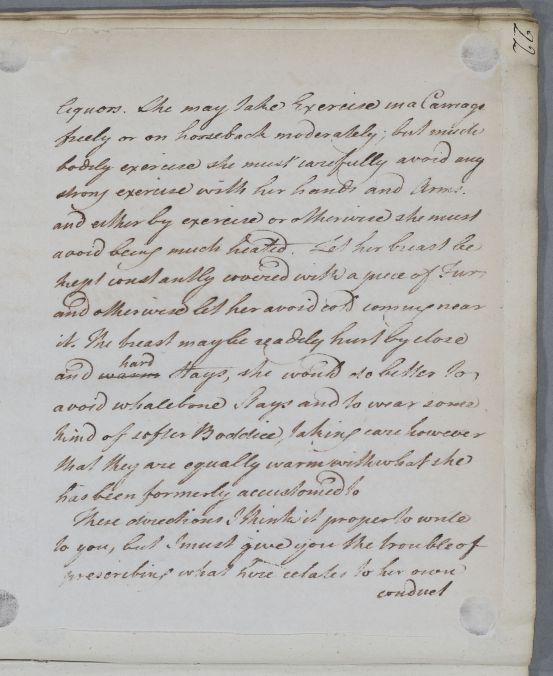 22
liquors. She may take Exercise in a Carriage
freely or on horseback moderately; but much
bodily exercise she must carefully avoid any
strong exercise with her hands and Arms.
and either by exercise or otherwise she must
avoid being much heated. Let her breast be
kept constantly covered with a piece of Fur
and otherwise let her avoid cold coming near
it. The breast may be readily hurt by close
hard
and warm Stays, she would do better to
avoid whalebone Stays and to wear some
kind of softer Boddice, taking care however
that they are equally warm with what she
has been formerly accustomed to
These directions I think it proper to write
to you, but I must give you the trouble of
prescribing what here relates to her own
conduct